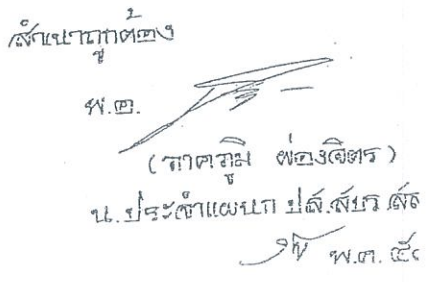 สำเนาถูกต้อง
พ.อ.
(ภาคภูมิ ผ่องจิตร)
น.ประจำแผนก ปส.สบว.
พ.ค. ๕